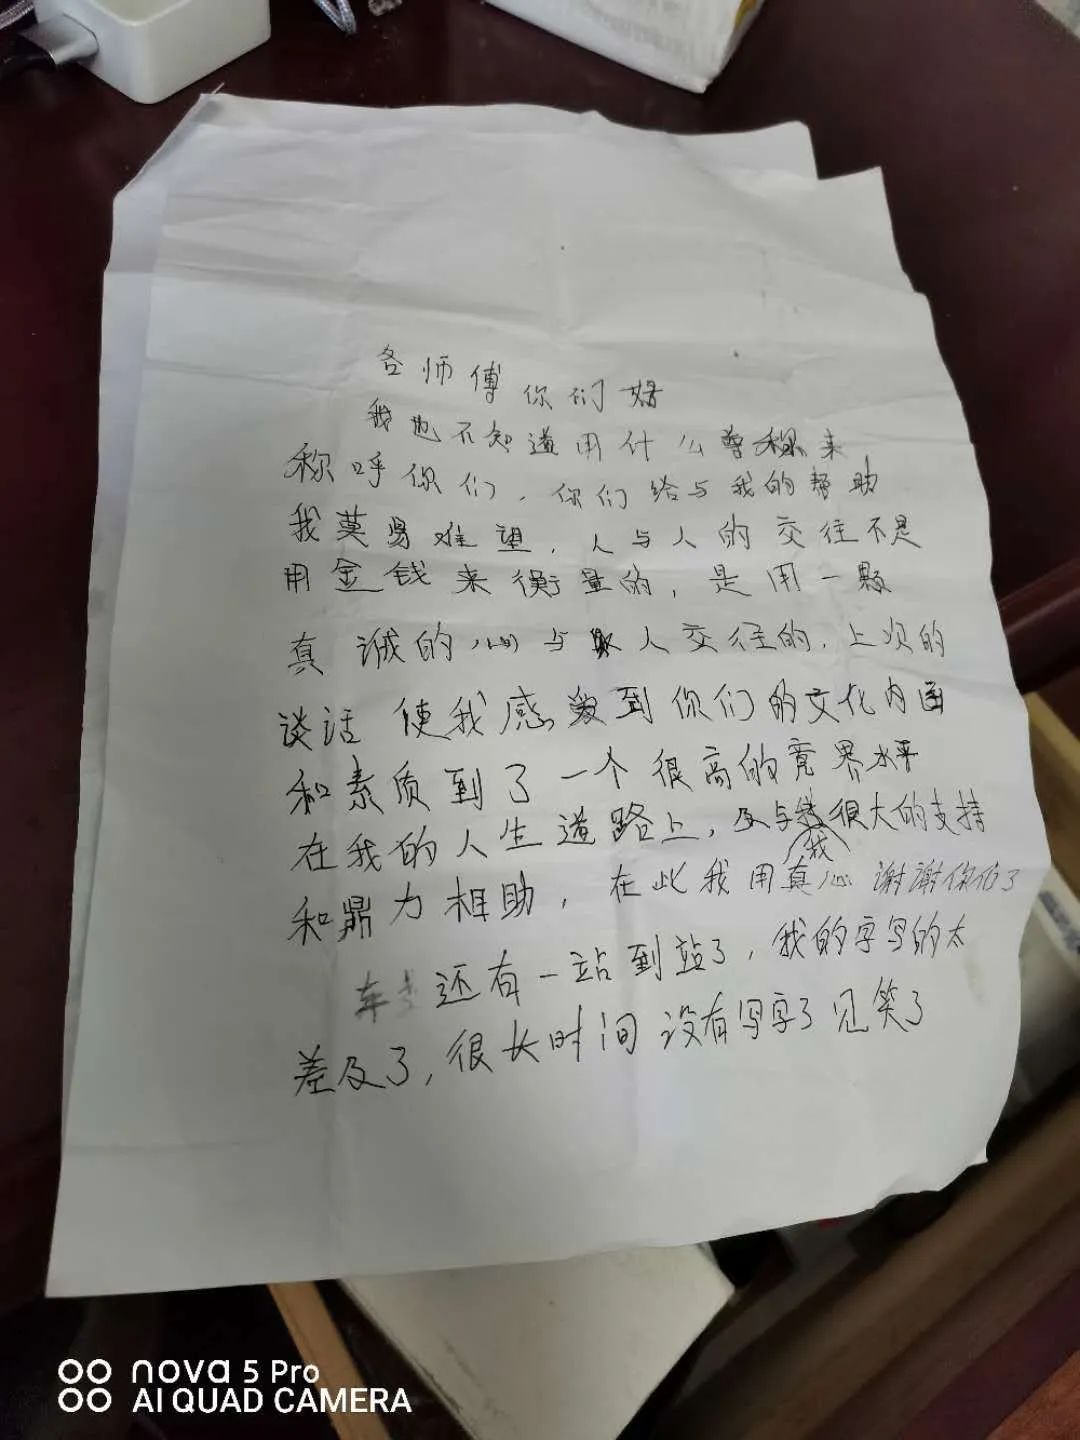 各师傅你们好
我也不知道用什么尊称来
称呼你们，你们给与我的帮助
我莫易难望，人与人的交往不是
用金钱来衡量的，是用一颗
真诚的心与人交往的，上次的
谈话使我感受到你们的文化内函
和素质到了一个很高的竟界水平
在我的人生道路上，及与我很大的支持
和鼎力相助，在此我用真心谢谢你们了
车还有一站到站了，我的字写的太
差及了，很长时间没有写字了见笑了
nova 5 Pro
AI QUAD CAMERA